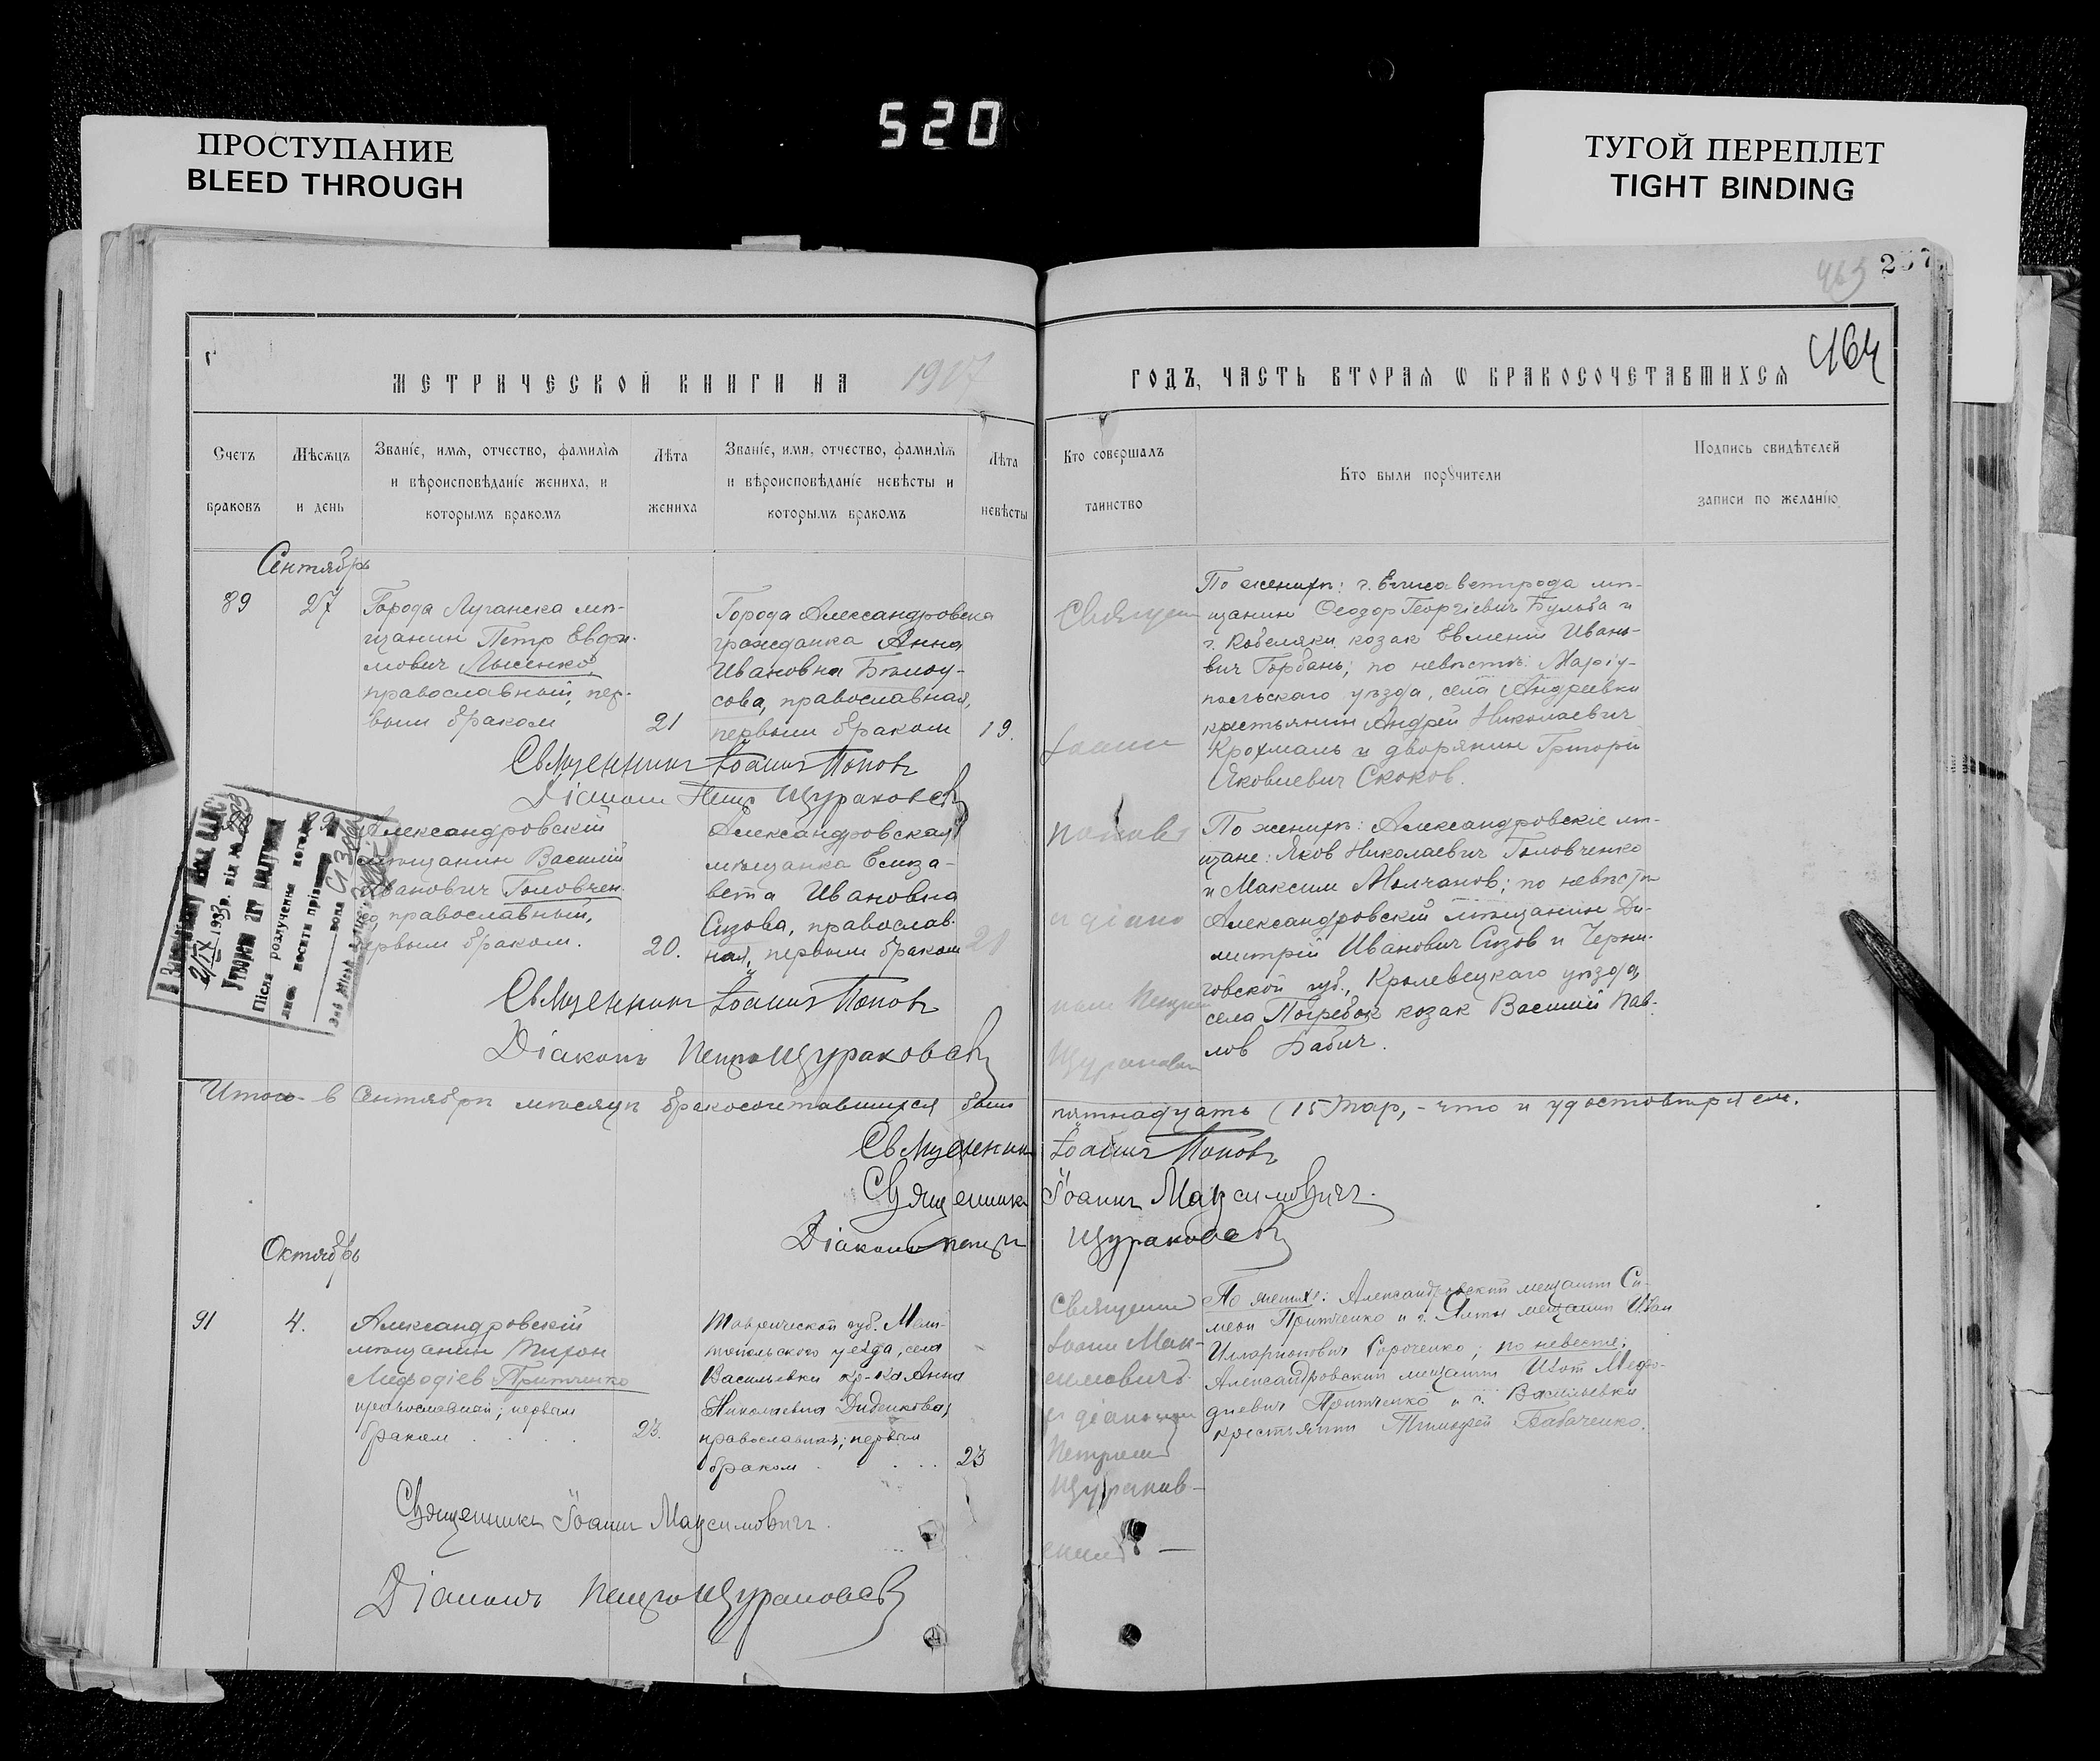 520
ПРОСТУПАНИЕ
BLEED THROUGH
ТУГОЙ ПЕРЕПЛЕТ
TIGHT BINDING
463
464
МЕТРИЧЕСКОЙ КНИГИ НА
ГОДЪ, ЧАСТЬ ВТОРАЯ Ѡ БРАКОСОЧЕТАВШИХСЯ
Счетъ
браковъ
Мѣсяцъ
и день
Званіе, имя, отчество, фамилія
и вѣроисповѣданіе жениха, и
которымъ бракомъ
Лѣта
жениха
Званіе, имя, отчество, фамилія
и вѣроисповѣданіе невѣсты и
которымъ бракомъ
Лѣта
невѣсты
Кто совершалъ
таинство
Кто были порꙋчители
Подпись свидѣтелей
записи по желанію
Сентябрь
89
27
Города Луганска мѣ-
щанин Петр Евфи-
мович Лысенко
православный, пер-
вым браком
21
Города Александровска
гражданка Анна
Ивановна Бѣлоу-
сова, православная,
первым браком
19.
По женихѣ: г. Елисаветграда мѣ-
щанин Феодор Георгіевич Бульба и
г. Кобеляки козак Евмений Ивано-
вич Горбань; по невѣстѣ: Маріу-
польскаго уѣзда, села Андреевки
крестьянин Андрей Николаевич
Крохмаль и дворянин Григорій
Яковлевич Скоков.
Священникъ Іоаннъ Поповъ
Діаконъ Петръ Щураковскій
Александровскій
мѣщанин Василий
Иванович Головчен-
ко, православный,
первым браком.
20.
Александровская
мѣщанка Елиза-
вета Ивановна
Сизова, православ-
ная, первым браком
По женихѣ: Александровскіе мѣ-
щане: Яков Николаевич Головченко
и Максим Молчанов; по невѣстѣ
Александровскій мѣщанин Ди-
митрій Иванович Сизов и Черни-
говской губ., Кролевецкаго уѣзда,
села Погребок козак Василий Пав-
лов Бабич.
Священ
Іоанн
Поповъ
и діако
ном Петром
Щураковск
Священникъ Іоаннъ Поповъ
Діаконъ Петръ Щураковскій
Итого в Сентябрѣ мѣсяцѣ бракосочетавшихся было пятнадцать (15) пар, - что и удостовѣряем.
Священникъ Іоаннъ Поповъ
Священникъ Іоаннъ Максимовичъ.
Діаконъ Петръ Щураковскій
Октябрь
91
4.
Александровскій
мѣщанин Тихон
Мефодіев Притченко
православный; первым
браком
23.
Таврической губ. Мели-
топольского уезда, села
Васильевки кр-ка Анна
Николаевна Диденкова,
православная; первым
браком
23
Священник
Іоанн Мак-
симович
и діаконом
Петром
Щураков-
ским —
По женихе: Александровский мещанин Си-
меон Притченко и г. Ялты мещанин Иван
Илларионович Гороченко; по невесте:
Александровский мещанин Изот Мефо-
диевич Притченко и с. Васильевки
крестьянин Тимофей Бабаченко.
Священникъ Іоаннъ Максимовичъ.
Діаконъ Петръ Щураковскій